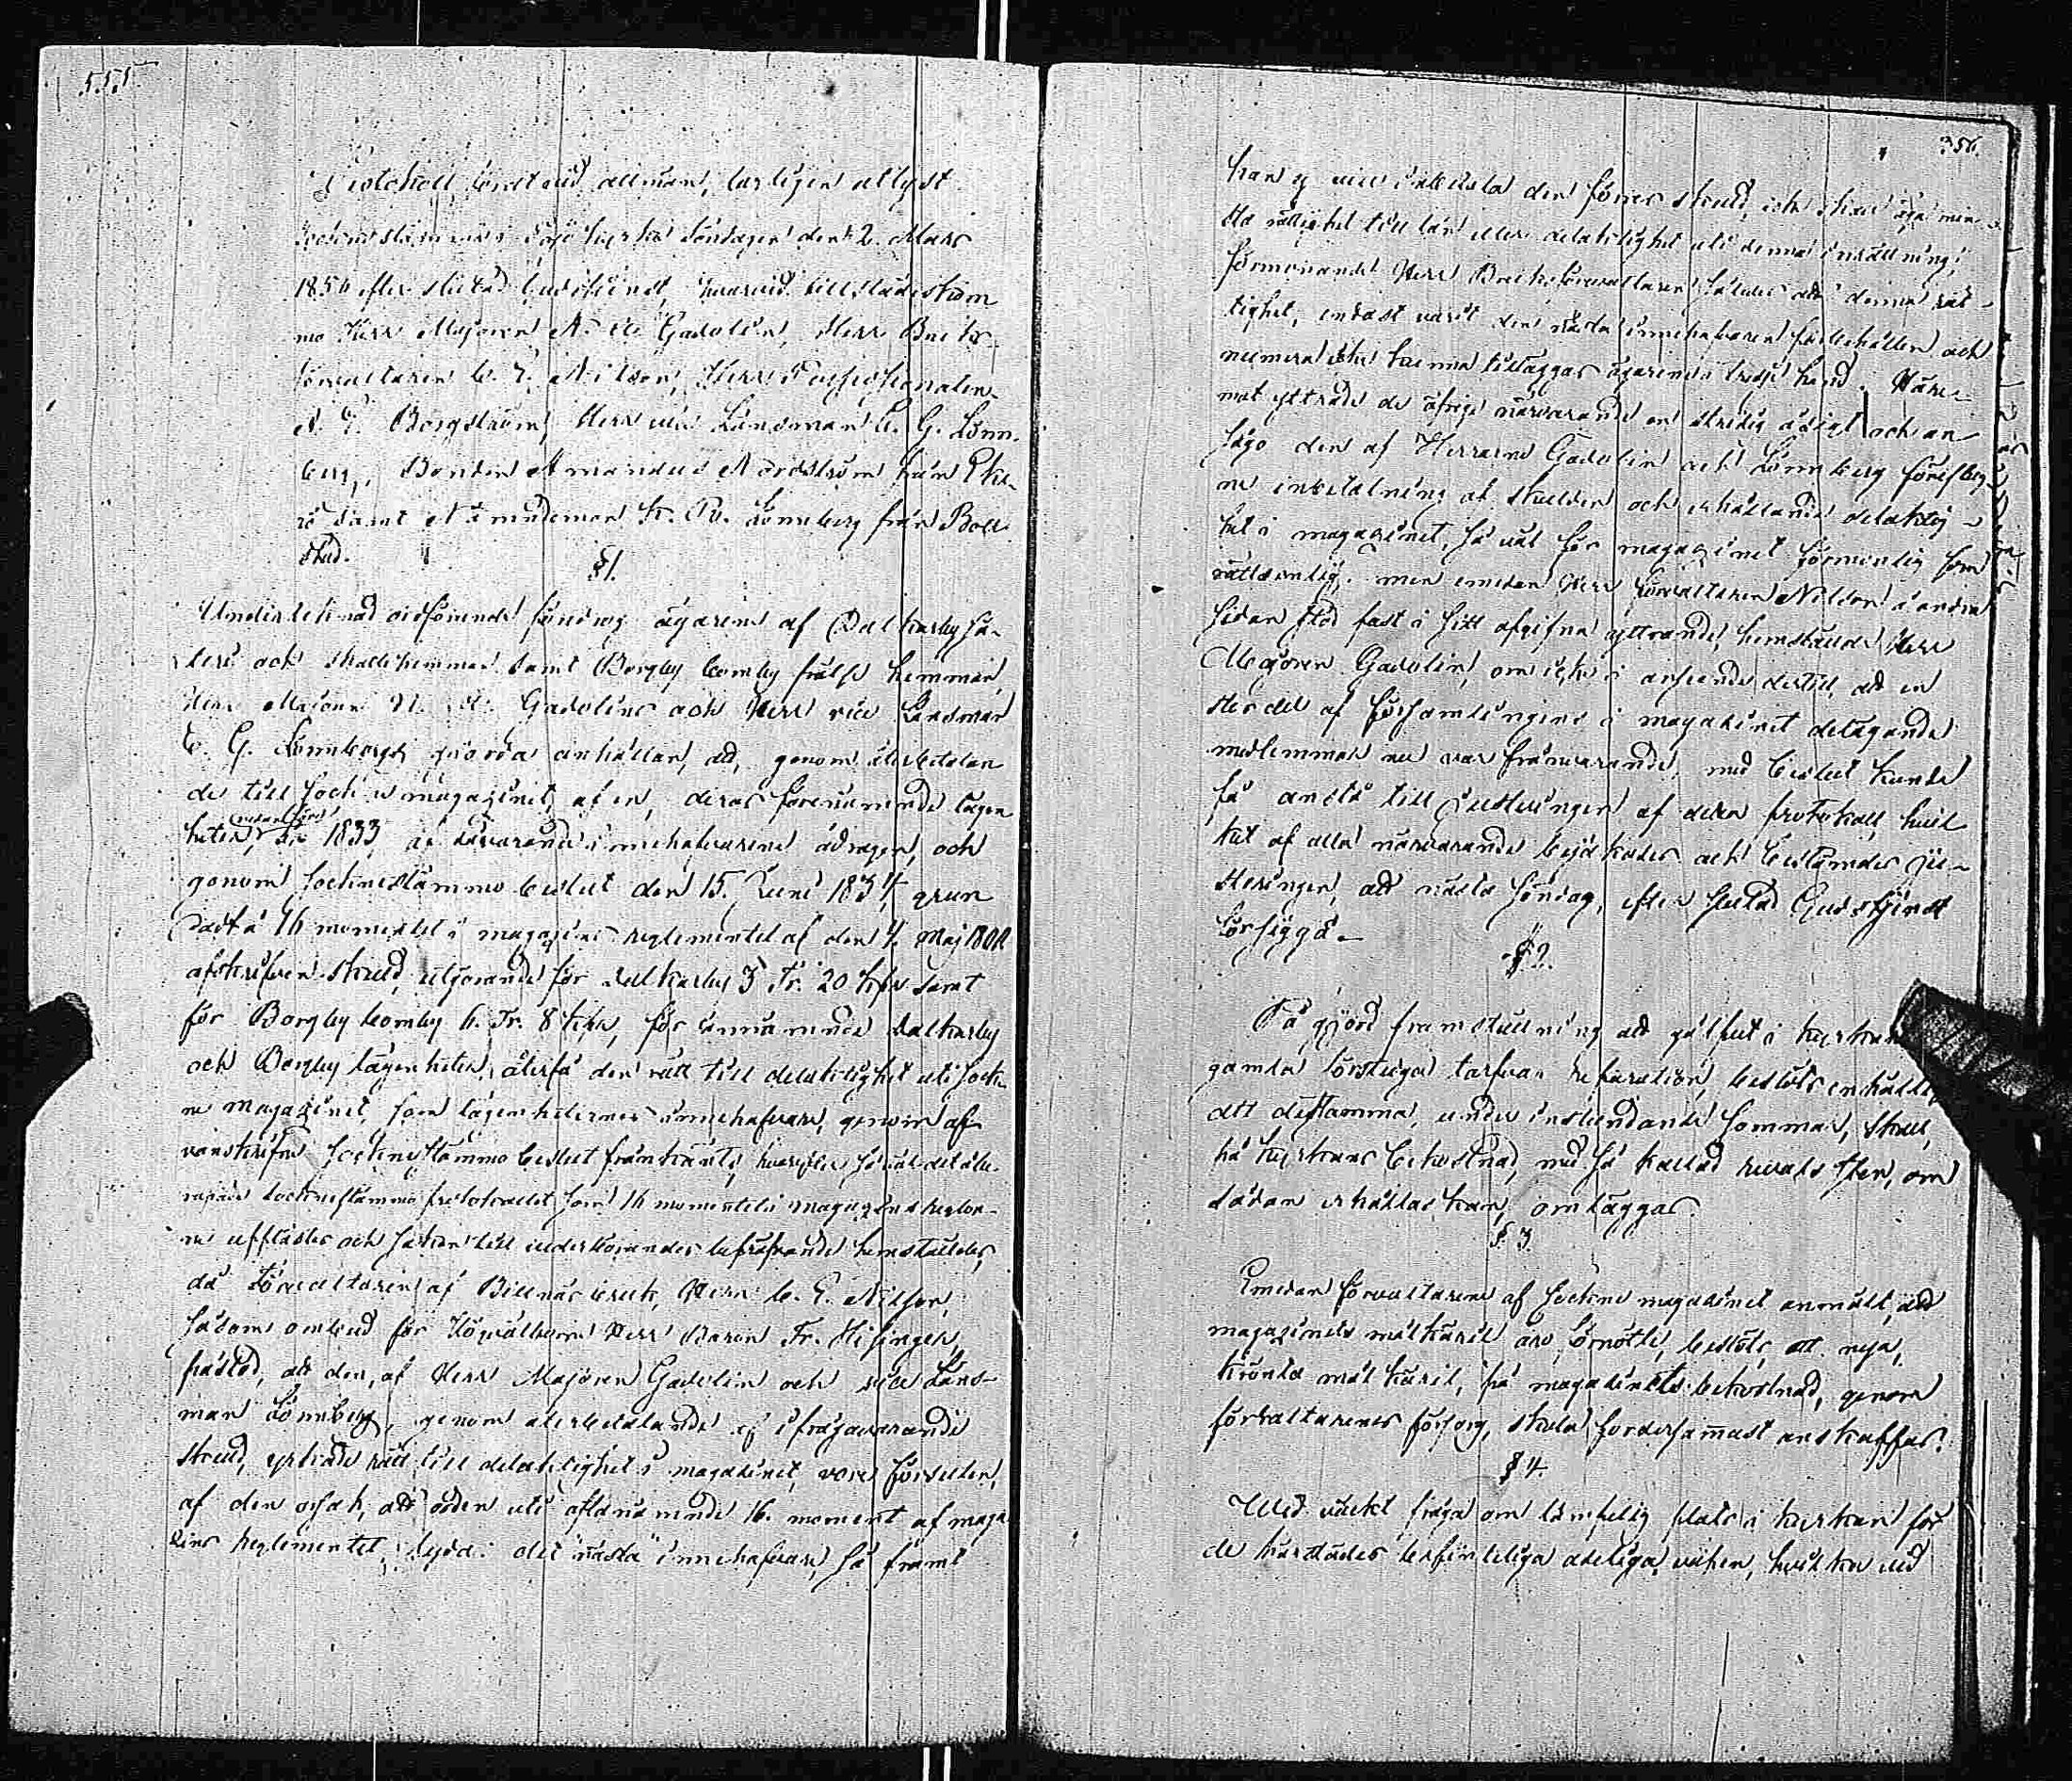 355
Protokoll fördt vid allmän, lagligen utlyst
sockenstämma i Pojo kyrka söndagen den 2. Mars
1856 efter slutad Gudstjenst, hvarvid tillstädeskom
mo Herr Majoren A. W. Gadolin, Herr Bruks-
förvaltaren C. E. Nilson, Herr Possessionaten
A. F. Borgström, Herr vice Länsman C. G. Lönn-
berg, Bonden Amandus Nordström från Eke-
rö samt Nämndeman K. R. Lönnberg från Boll-
stad.
§1.
Undertecknad ordförande föredrog ägarens af Dalkarby sä-
teri och skattehemman samt Borgby Gomby frälse hemman,
Herr Majoren A. W. Gadolins och Herr vice Länsman
C. G. Lönnbergs gjorda anhållan, att, genom återbetalan
de till sockne magazinet af en, deras förenämnde lägen
heter, redan före år 1833, af dåvarande innehafvarene ådragen, och
genom sockenstämmo beslut den 15. Juni 1834, grun
dadt å 16 momentet i magazins reglementet af den 4. Maj 1802
afskrifven skuld, utgörande för Dalkarby 3 Tr. 20 kpr samt
för Borgby Gomby 6. Tr. 8 kpr, för ännämnde Dalkarby
och Borgby lägenheter, återfå den rätt till delaktighet uti sock-
ne magazinet, som lägenheternes innehafvare, genom of-
vanskrifne sockenstämmo beslut frånkänts, hvarefter såväl det åbe-
ropade sockenstämmo protokollet som 16 momentet i magazins reglem-
te upplästes och saken till vederbörandes bepröfvande hemställdes,
då Förvaltaren af Billnäs bruk, Herr C. E. Nilson,
såsom ombud för Högvälborne Herr Baron Fr. Hisinger,
påstod, att den, af Herr Majoren Gadolin och vice Läns-
man Lönnberg, genom återbetalande af ifrågavarande
skuld, yrkade rätt till delaktighet i magazinet, vore förfallen,
af den orsak, att orden uti oftanämnde 16. moment af maga
zins reglementet, lyda: det "nästa" innehafvare, så framt
356.
han ej vill inbetala den förres skuld, icke skall äga min-
sta rättighet till lån eller delaktighet uti denna inrättning;
förmenande Herr Bruksförvaltaren således att denna rät-
tighet, endast varit den nästa innehafvaren förbehållen och
numera icke kunna tilläggas ägarene i tredje hand. Häre-
mot yttrade de öfrige närvarande en stridig åsigt och an
sågo den af Herrarne Gadolin och Lönnberg föreslag-
ne inbetalning af skulden och erhållande delaktig-
het i magazinet, så väl för magazinet förmonlig som
rättsenlig; men emedan Herr Förvaltaren Nilson å andra
sidan stod fast å sitt afgifna yttrande, hemställde Herr
Majoren Gadolin, om icke i anseende dertill, att en
stor del af församlingens i magazinet delägande
medlemmar nu var frånvarande, med beslut kunde
få anstå till justeringen af detta protokoll, hvil
ket af alla närvarande bejakades och bestämdes ju-
steringen, att nästa söndag, efter slutad Gudstjenst
försiggå.
§ 2.
På gjord framställning att golfvet i kyrkans
gamla förstuga tarfvar reparation, beslöts enhälligt
att detsamma, under instundande sommar, skall,
på kyrkans bekostnad, med så kallad revals sten, om
sådan erhållas kan, omläggas.
§. 3.
Emedan förvaltarene af sockne magazinet anmält, att
magazinets målkäril äro förnötte, beslöts, att nya,
krönta mål käril, på magazinets bekostnad, genom
förvaltarenes försorg, skola fordersammast anskaffas.
§ 4.
Uti väckt fråga om lämpelig plats i kyrkan för
de härstädes befintliga adeliga vapen, hvilka vid